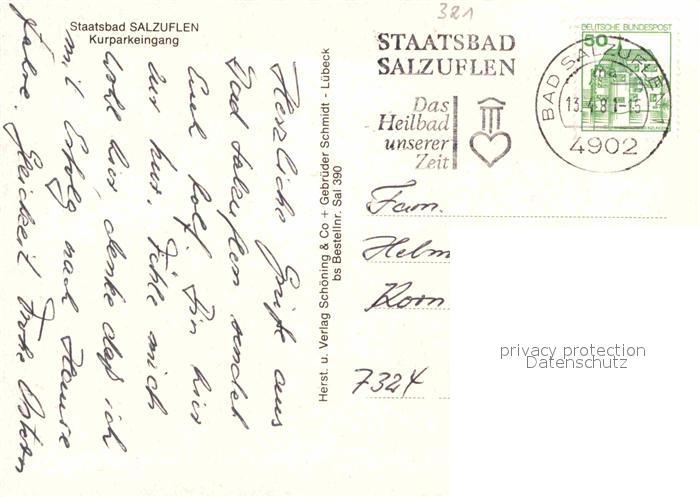 321
Staatsbad SALZUFLEN
Kurparkeingang
STAATSBAD
SALZUFLEN
Das
Heilbad
unserer
Zeit
DEUTSCHE BUNDESPOST
50
BAD SALZUFLEN
13.4.81-15
4902
Herzliche Grüße aus
Bad Salzuflen sendet
Euch Rolf. Bin hier
zur Kur. Fühle mich
wohl hier, denke daß ich
mit Erfolg nach Hause
fahre. Gleichzeit Frohe Ostern
Herst. u. Verlag Schöning & Co + Gebrüder Schmidt - Lübeck
bs Bestellnr. Sal 390
Fam.
Helm
Korn
7324
privacy protection
Datenschutz